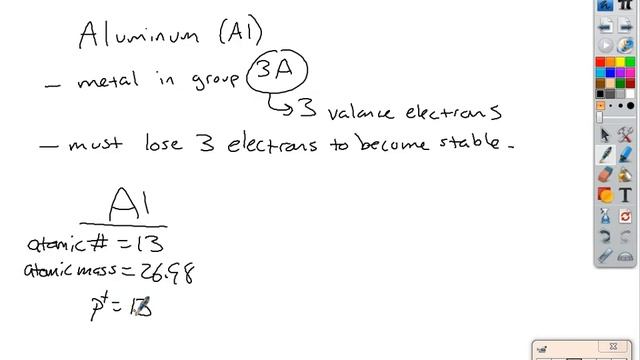 Aluminum (Al)
– metal in group 3A
→ 3 valance electrons
– must lose 3 electrons to become stable.
Al
atomic # = 13
atomic mass = 26.98
p+ = 13